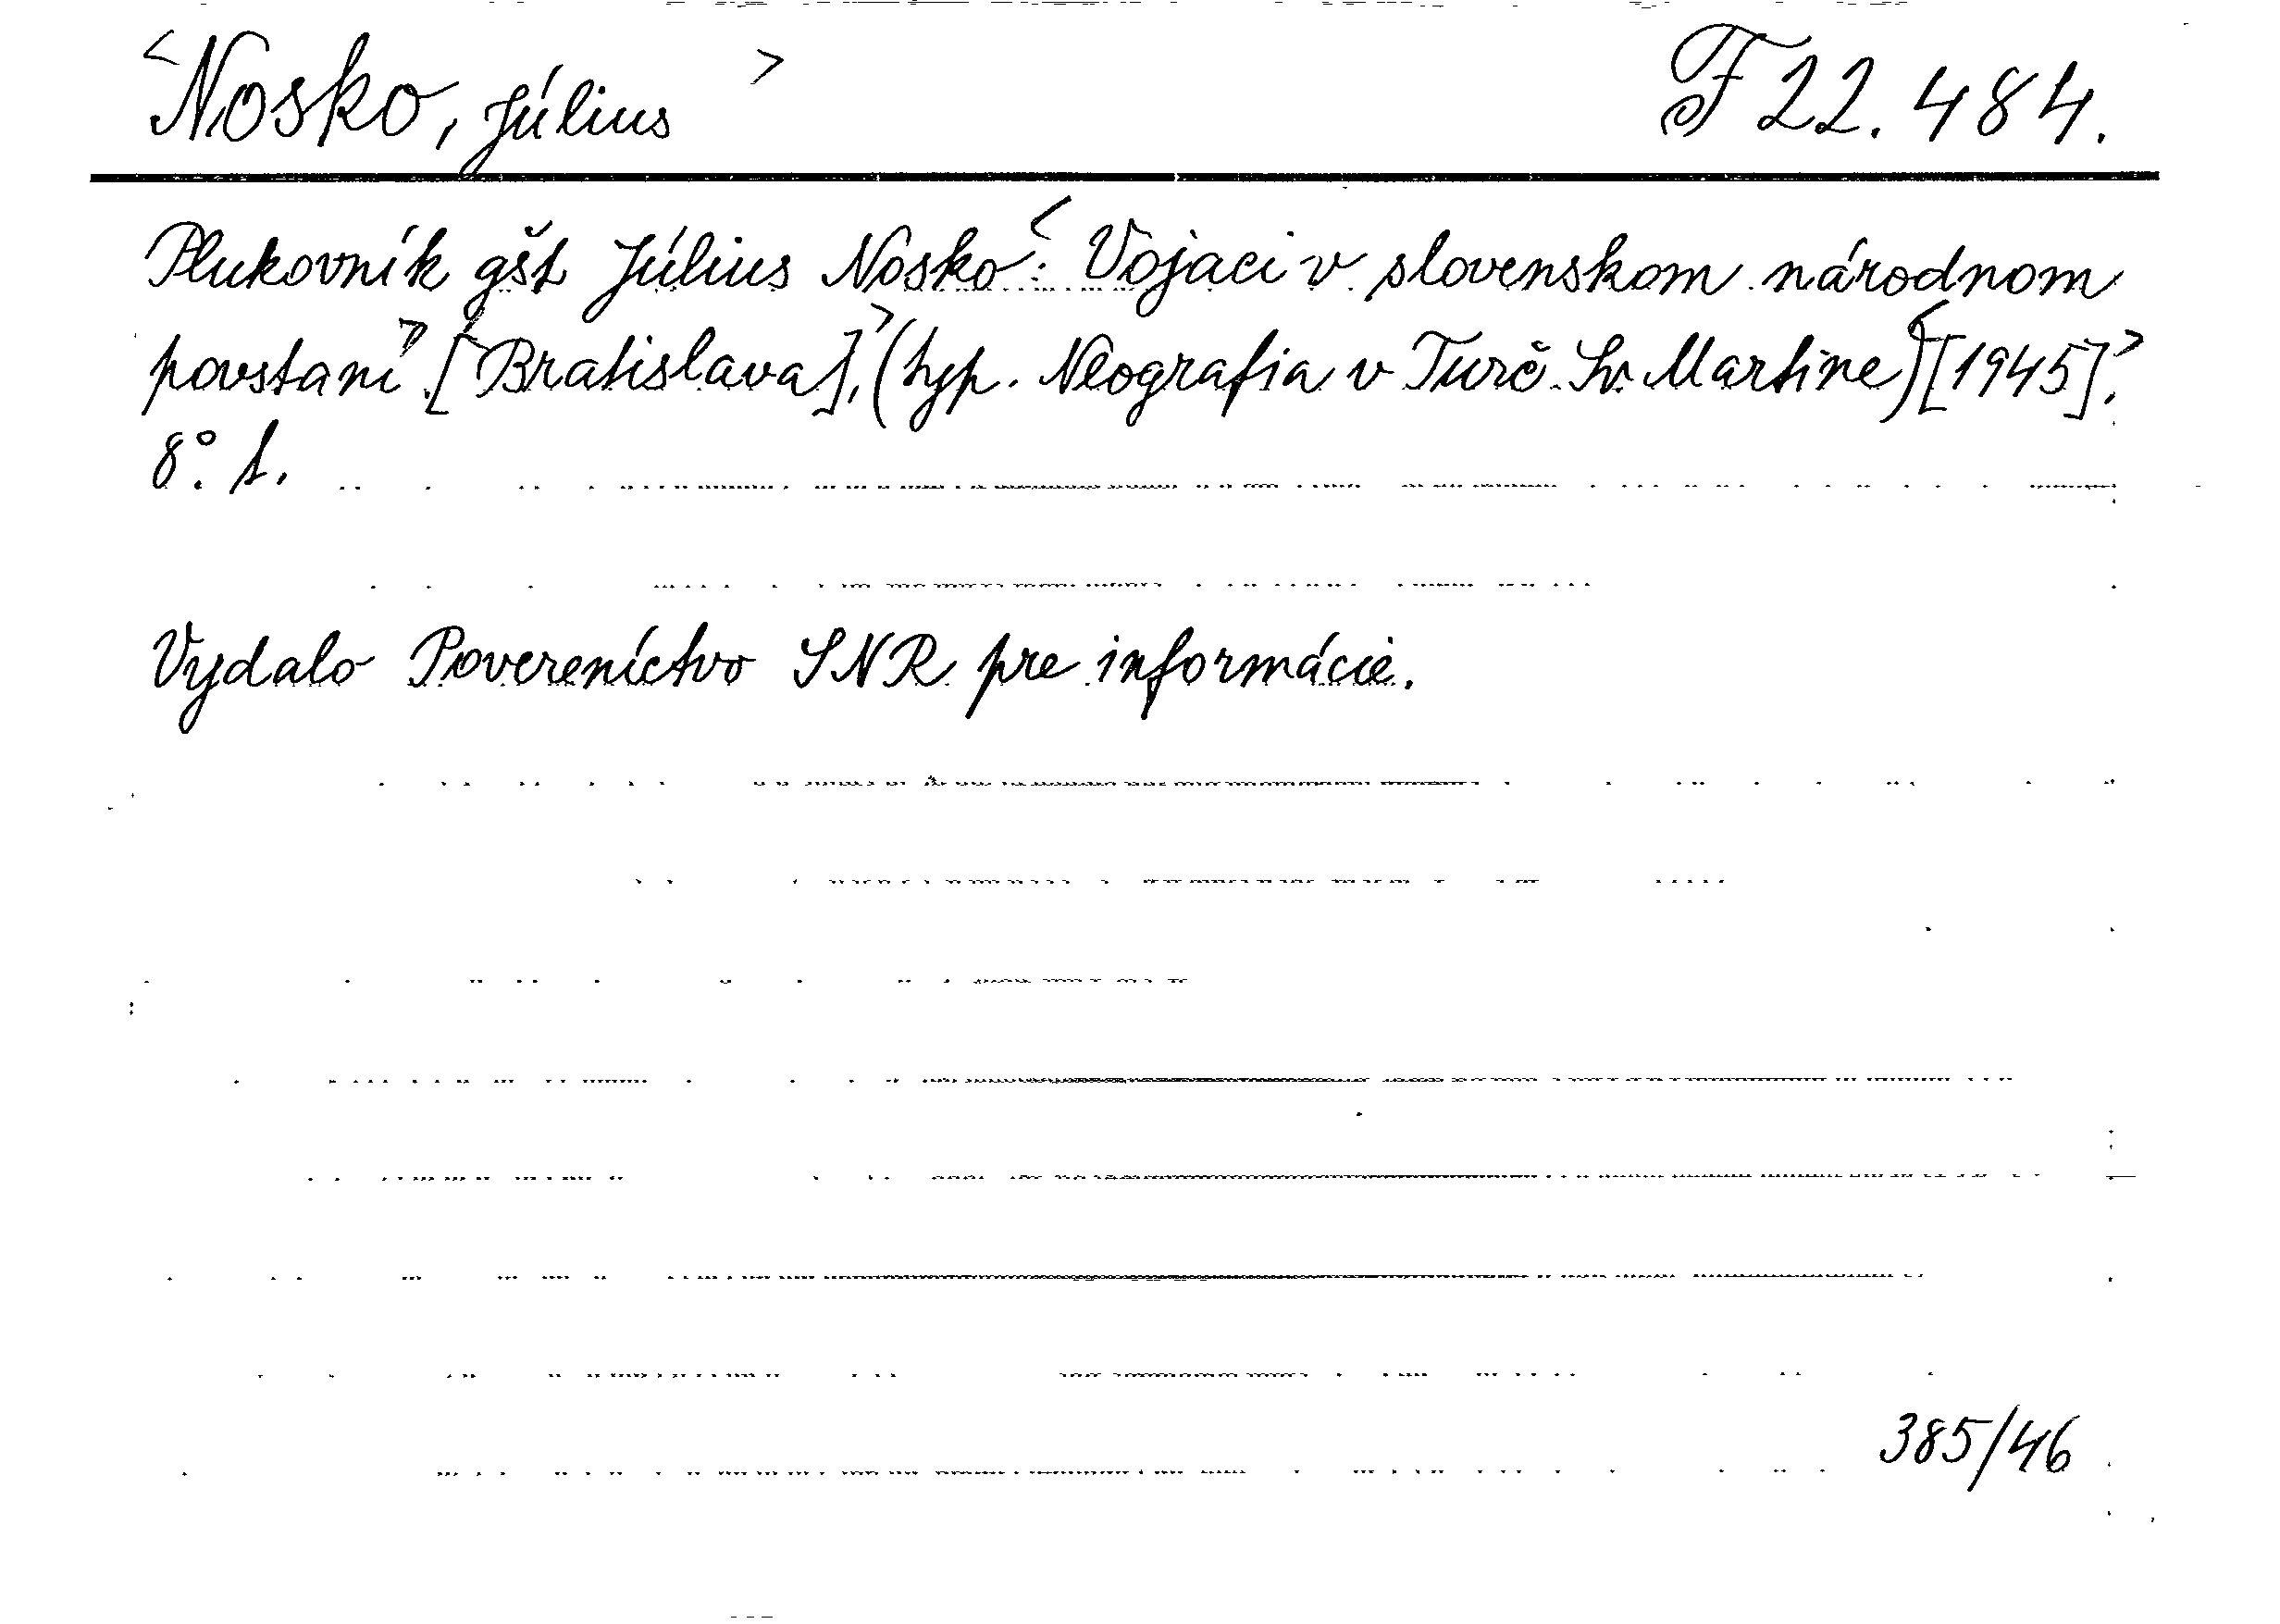 <Nosko, Július> F 22.484.
Plukovník gšt Július Nosko: <Vojaci v slovenskom národnom
povstaní>. [<Bratislava],> (typ. Neografia v Turč. Sv. Martine) <[1945].>
8°. 1.
Vydalo Povereníctvo SNR pre informácie.
385/46